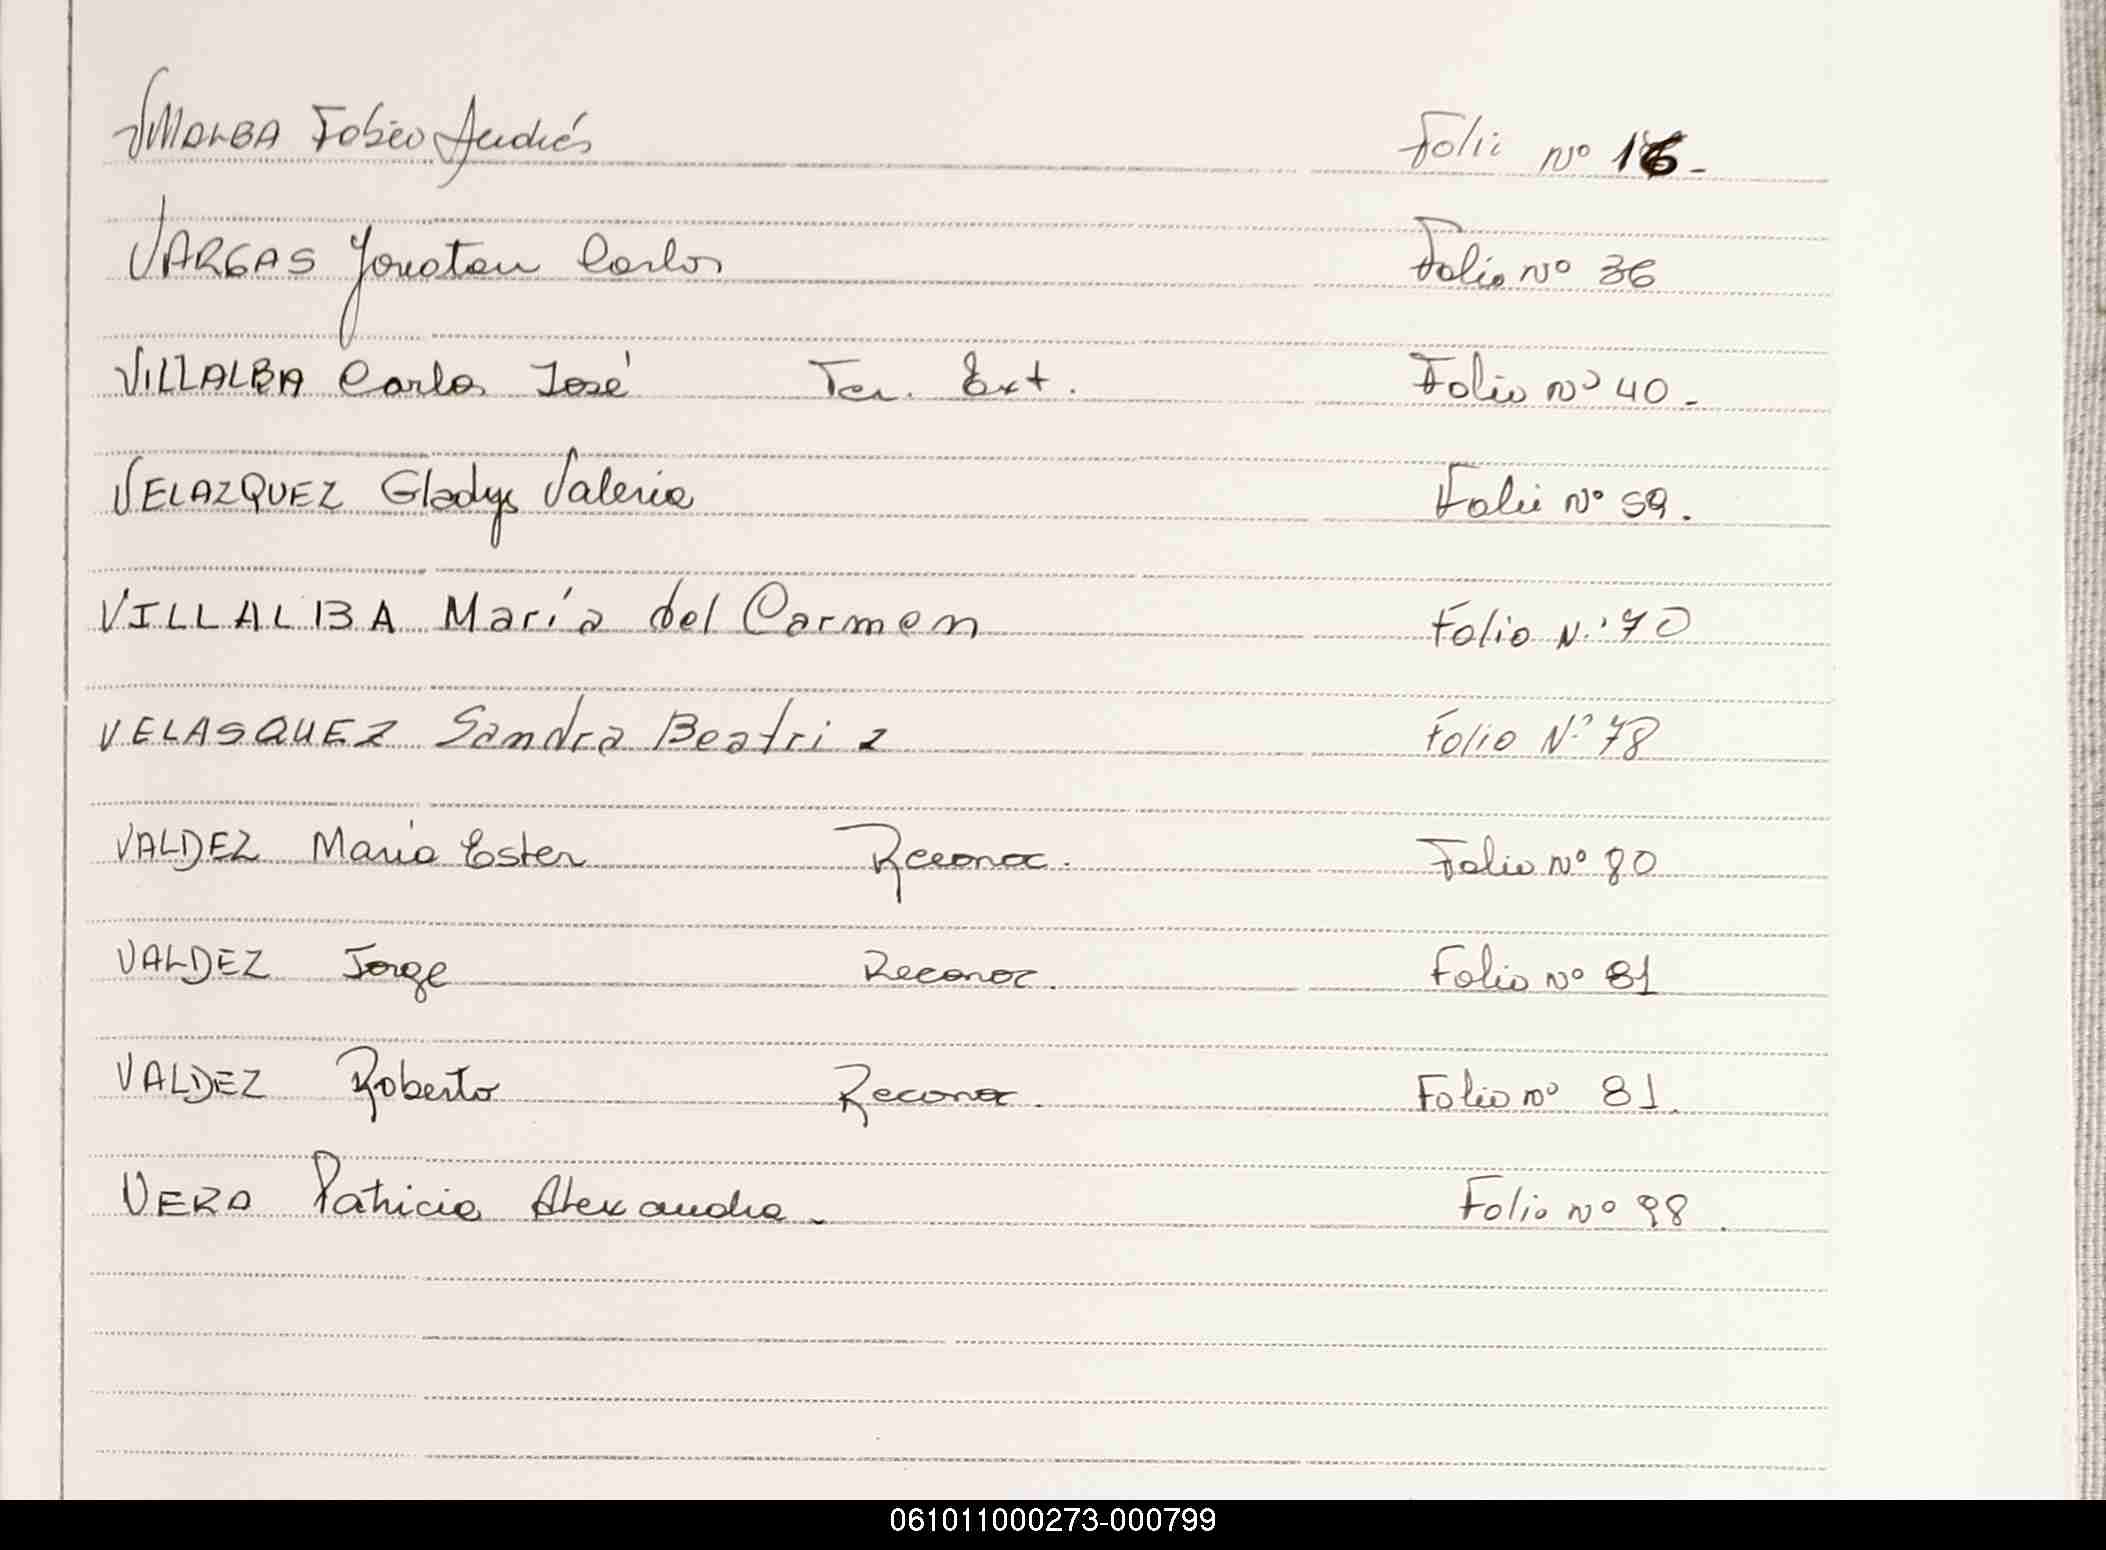 VILLALBA Fabio Andrés Folio nº 16.-
VARGAS Jonatan Carlos Folio nº 36
VILLALBA Carlos José Ter. Ext. Folio nº 40.-
VELAZQUEZ Gladys Valeria Folio Nº 59.
VILLALBA María del Carmen Folio N.º 70
VELASQUEZ Sandra Beatriz Folio Nº 78
VALDEZ María Ester Reconoc. Folio Nº 80
VALDEZ Jorge Reconoc. Folio Nº 81
VALDEZ Roberto Reconoc. Folio nº 81.
VERA Patricia Alexandra.- Folio Nº 98.
061011000273-000799